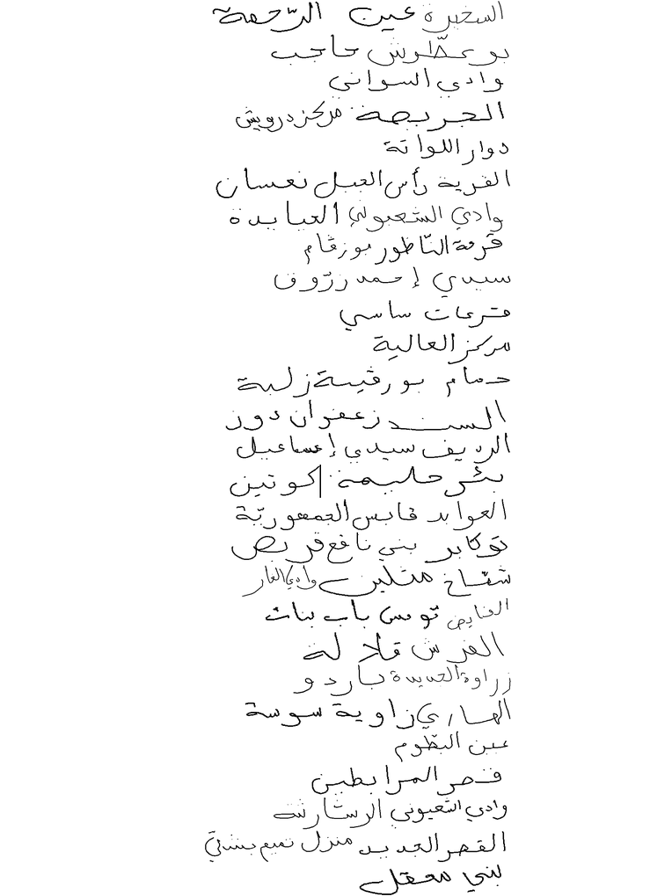 الصخيرة عين الرّحمة
بو عطّوش حاجب
وادي السواني
الجريصة مركز درويش
دوار اللواتة
القرية رأس الجبل نعسان
وادي الشعبوني العبايدة
قرعة النّاظور بوزڨام
سيدي إحمد زرّوق
قرعات ساسي
مركز العالية
حمام بورقيبة زلبة
السند زعفران دوز
الريف سيدي إسماعيل
بئر حليمة أكوتين
العوابد قابس الجمهوريّة
توكابر بني نافع قربص
شماخ متلين وادي الغار
الغابض تونس باب بنات
الفرش قلالة
زراوة الجديدة باردو
الهاري زاوية سوسة
عين البطّوم
قصر المرابطين
وادي الشعبوني الرشارشة
القصر الجديد منزل تميم بشلّي
بني معقل